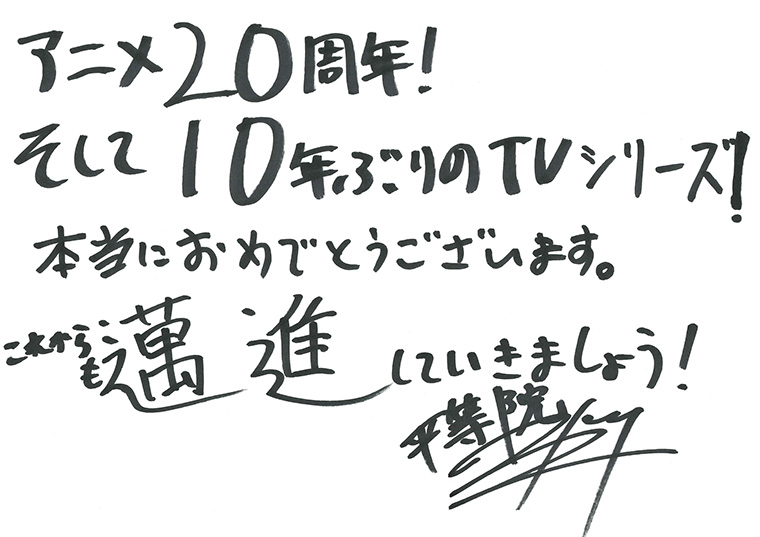 アニメ20周年!
そして10年ぶりのTVシリーズ!
本当におめでとうございます。
これからも邁進していきましょう!
平等院